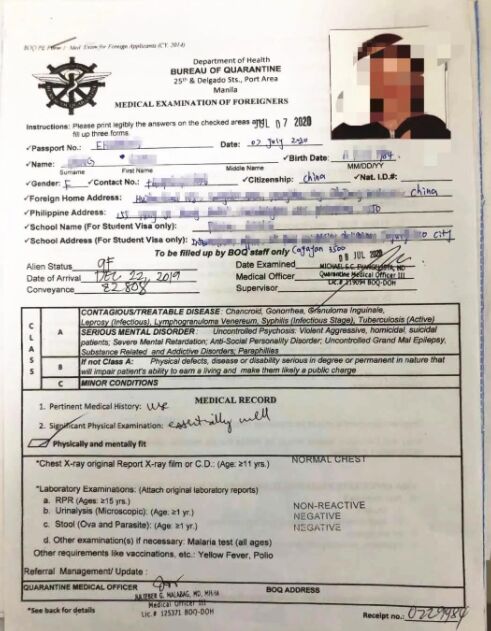 BOQ PE Form / Med Exam for Foreign Applicants (CY. 2014)
Department of Health
BUREAU OF QUARANTINE
25th & Delgado Sts., Port Area
Manila
MEDICAL EXAMINATION OF FOREIGNERS
Instructions: Please print legibly the answers on the checked areas and
fill up three forms.
JUL 07 2020
✓Passport No.: Date: 07 July 2020
✓Name: ✓Birth Date:
Surname First Name Middle Name MM/DD/YY
✓Gender: F ✓Contact No.: ✓Citizenship: China ✓Nat. I.D.#:
✓Foreign Home Address: China
✓Philippine Address:
✓School Name (For Student Visa only):
✓School Address (For Student Visa only): city
To be filled up by BOQ staff only Cagayan 3500
Alien Status 9F Date Examined 08 JUL 2020
Date of Arrival DEC 22, 2019 Medical Officer
Medical Officer III
Conveyance 82808 Supervisor Lic.# BOQ-DOH
CLASS
A CONTAGIOUS/TREATABLE DISEASE: Chancroid, Gonorrhea, Granuloma Inguinale,
Leprosy (Infectious), Lymphogranuloma Venereum, Syphilis (Infectious Stage), Tuberculosis (Active)
SERIOUS MENTAL DISORDER: Uncontrolled Psychosis: Violent Aggressive, homicidal, suicidal
patients; Severe Mental Retardation; Anti-Social Personality Disorder; Uncontrolled Grand Mal Epilepsy,
Substance Related and Addictive Disorders; Paraphilies
B If not Class A: Physical defects, disease or disability serious in degree or permanent in nature that
will impair patient's ability to earn a living and make them likely a public charge
C MINOR CONDITIONS
MEDICAL RECORD
1. Pertinent Medical History:
2. Significant Physical Examination: essentially well
Physically and mentally fit
*Chest X-ray original Report X-ray film or C.D.: (Age: ≥11 yrs.) NORMAL CHEST
*Laboratory Examinations: (Attach original laboratory reports)
a. RPR (Ages: ≥15 yrs.) NON-REACTIVE
b. Urinalysis (Microscopic): (Age: ≥1 yr.) NEGATIVE
c. Stool (Ova and Parasite): (Age: ≥1 yr.) NEGATIVE
d. Other examination(s) if necessary: Malaria test (all ages)
Other requirements like vaccinations, etc.: Yellow Fever, Polio
Referral Management/ Update :
QUARANTINE MEDICAL OFFICER BOQ ADDRESS
G. MALABAG, MD, MHA
Medical Officer III
Lic.# 125371 BOQ-DOH
*See back for details
Receipt no.: 0229984